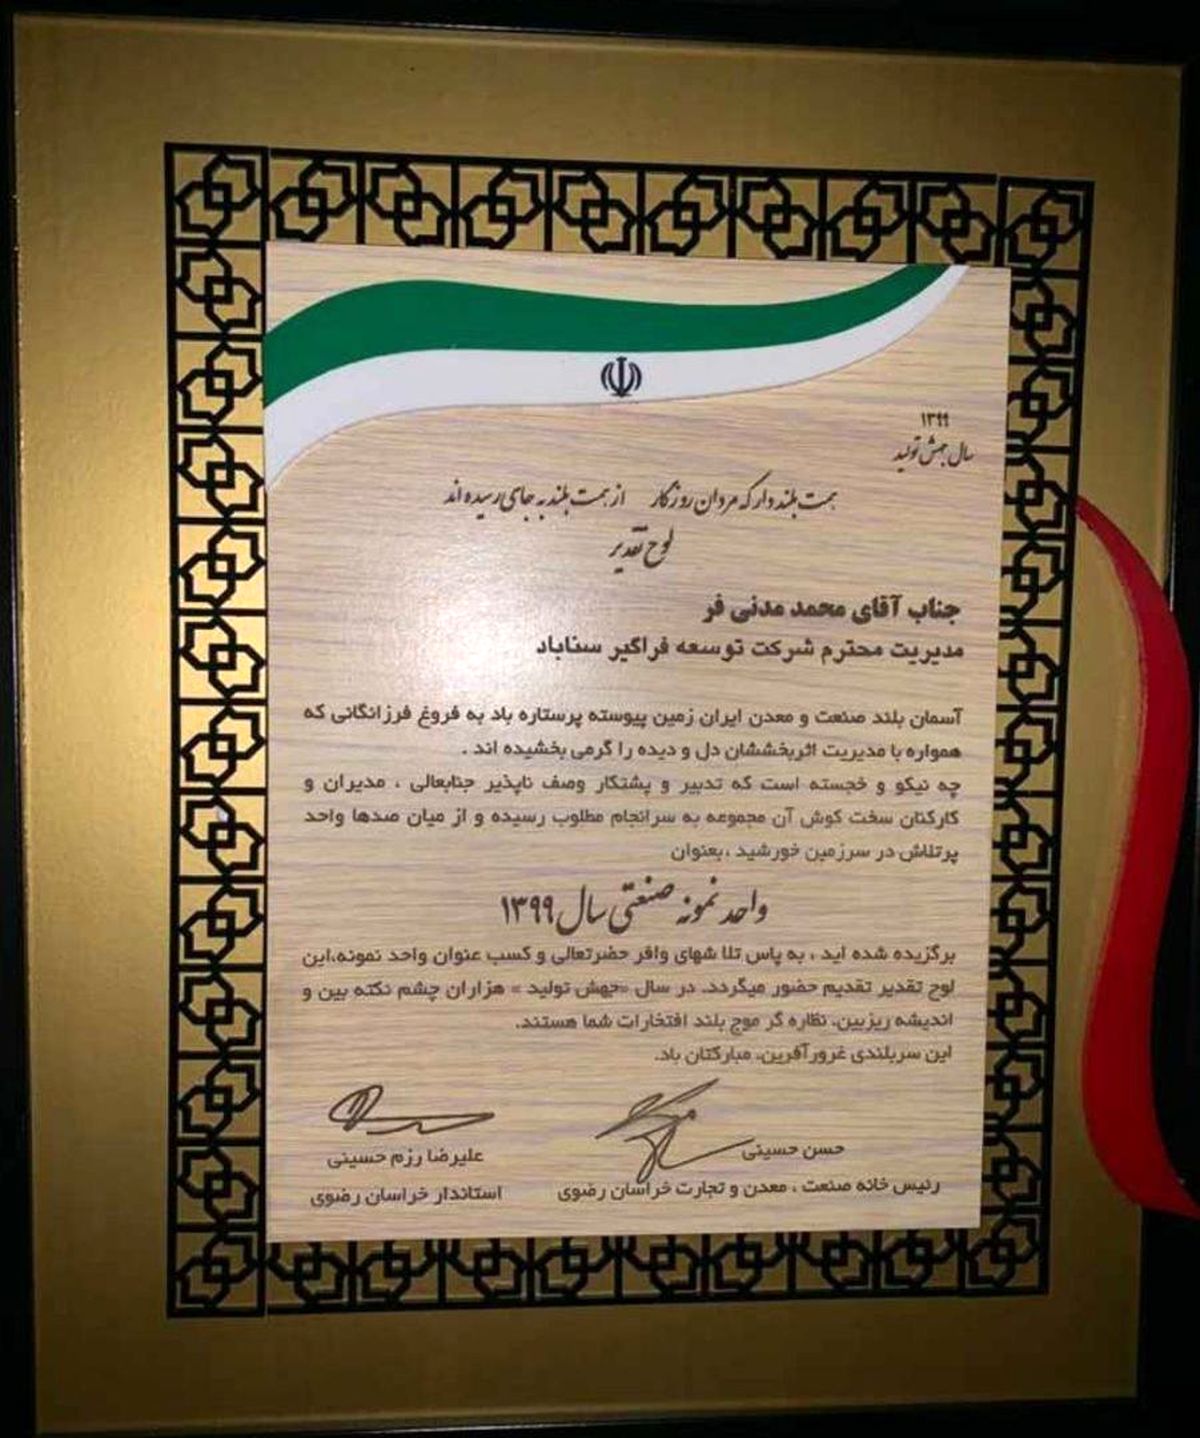 ۱۳۹۹
سال جهش تولید
همت بلند دار که مردان روزگار از همت بلند به جای رسیده اند
لوح تقدیر
جناب آقای محمد مدنی فر
مدیریت محترم شرکت توسعه فراگیر سناباد
آسمان بلند صنعت و معدن ایران زمین پیوسته پرستاره باد به فروغ فرزانگانی که
همواره با مدیریت اثربخششان دل و دیده را گرمی بخشیده اند .
چه نیکو و خجسته است که تدبیر و پشتکار وصف ناپذیر جنابعالی ، مدیران و
کارکنان سخت کوش آن مجموعه به سرانجام مطلوب رسیده و از میان صدها واحد
پرتلاش در سرزمین خورشید ،بعنوان
واحد نمونه صنعتی سال ۱۳۹۹
برگزیده شده اید ، به پاس تلا شهای وافر حضرتعالی و کسب عنوان واحد نمونه،این
لوح تقدیر تقدیم حضور میگردد. در سال «جهش تولید » هزاران چشم نکته بین و
اندیشه ریزبین، نظاره گر موج بلند افتخارات شما هستند.
این سربلندی غرورآفرین، مبارکتان باد.
حسن حسینی
رئیس خانه صنعت ، معدن و تجارت خراسان رضوی
علیرضا رزم حسینی
استاندار خراسان رضوی